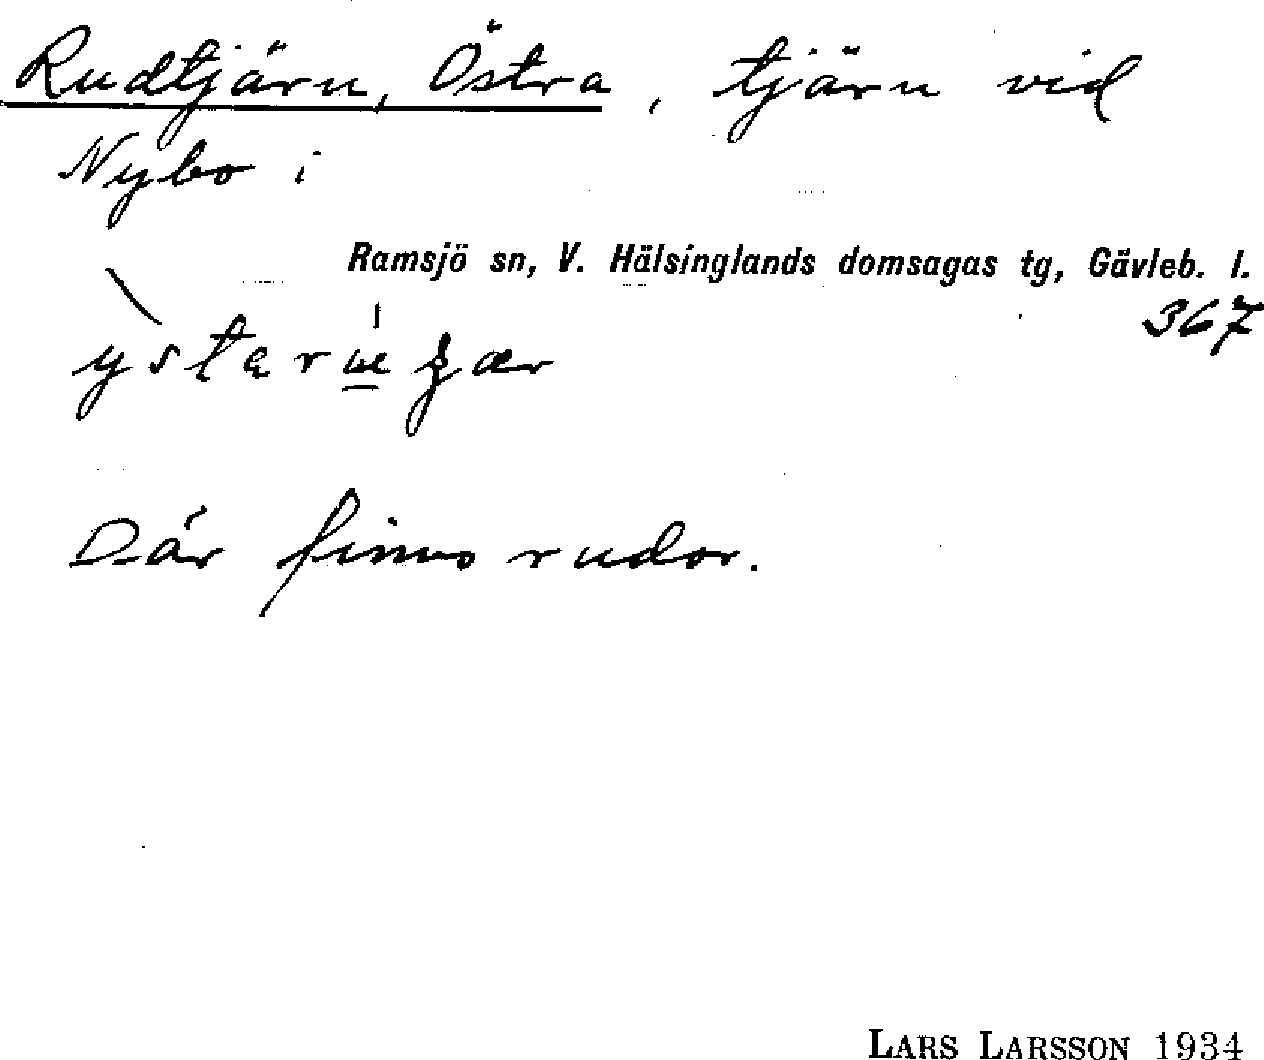 Rudtjärn, Östra, tjärn vid
Nybo i
Ramsjö sn, V. Hälsinglands domsagas tg, Gävleb. l.
367
Där finns rudor.
LARS LARSSON 1934